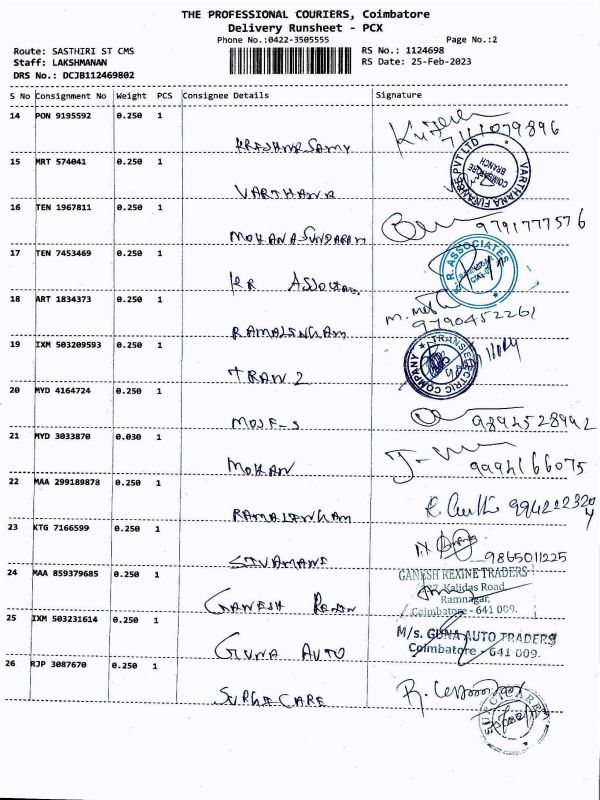 THE PROFESSIONAL COURIERS, Coimbatore
Delivery Runsheet - PCX
Phone No.:0422-3505555 Page No.:2
Route: SASTHIRI ST CMS RS No.: 1124698
Staff: LAKSHMANAN RS Date: 25-Feb-2023
DRS No.: DCJB112469802
S No Consignment No Weight PCS Consignee Details Signature
14 PON 9195592 0.250 1
KRISHNASAMY 7111079896
15 MRT 574041 0.250 1
VARTHANA FINANCE PVT LTD
COIMBATORE BRANCH
VARTHANA
16 TEN 1967811 0.250 1
MOHANASUNDARAM 9791777576
17 TEN 7453469 0.250 1
R. ASSOCIATES
KR
18 ART 1834373 0.250 1
RAMALINGAM 9790452261
19 IXM 503209593 0.250 1
TRANS ELECTRIC COMPANY
20 MYD 4164724 0.250 1
9894528992
21 MYD 3033870 0.030 1
MOHAN 9994166075
22 MAA 299189878 0.250 1
RAMALINGAM
23 KTG 7166599 0.250 1
SIVAMANI 9865011225
24 MAA 859379685 0.250 1
GANESH REXINE TRADERS
Kalidas Road
Ramnagar,
Coimbatore - 641 009.
GANESH REXIN
25 IXM 503231614 0.250 1
M/s. GUNA AUTO TRADERS
Coimbatore - 641 009.
GUNA AUTO
26 RJP 3087670 0.250 1
SURGICARE